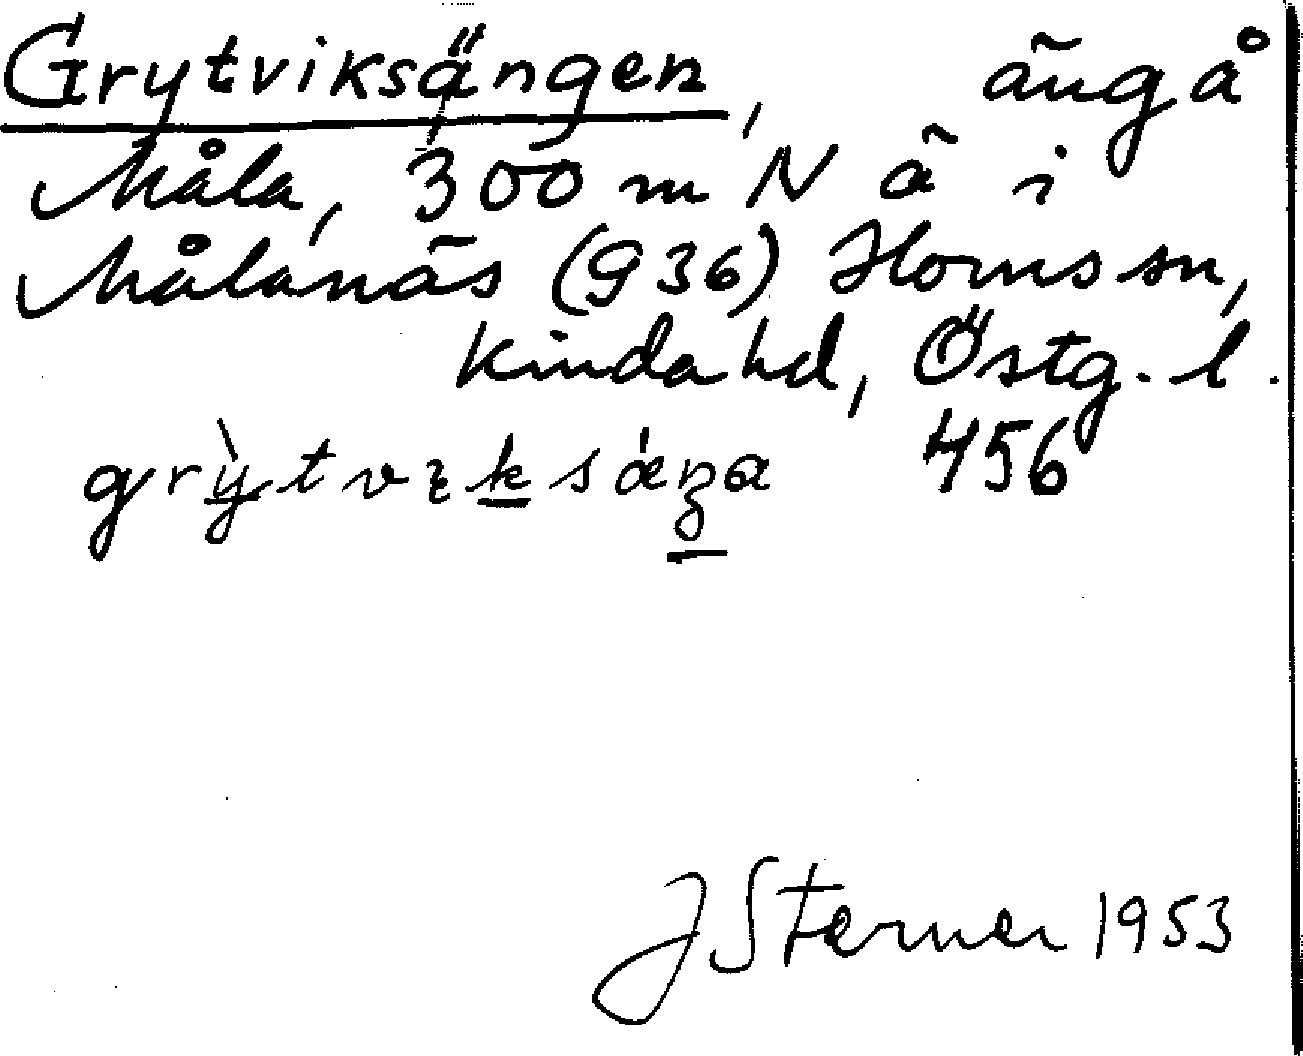 Grytviksängen, äng å
Måla, 300 m N ä i
Målanäs (936) Horns sn,
Kinda hd, Östg. l.
grỳtvɩksáŋa 456
J Sterner 1953